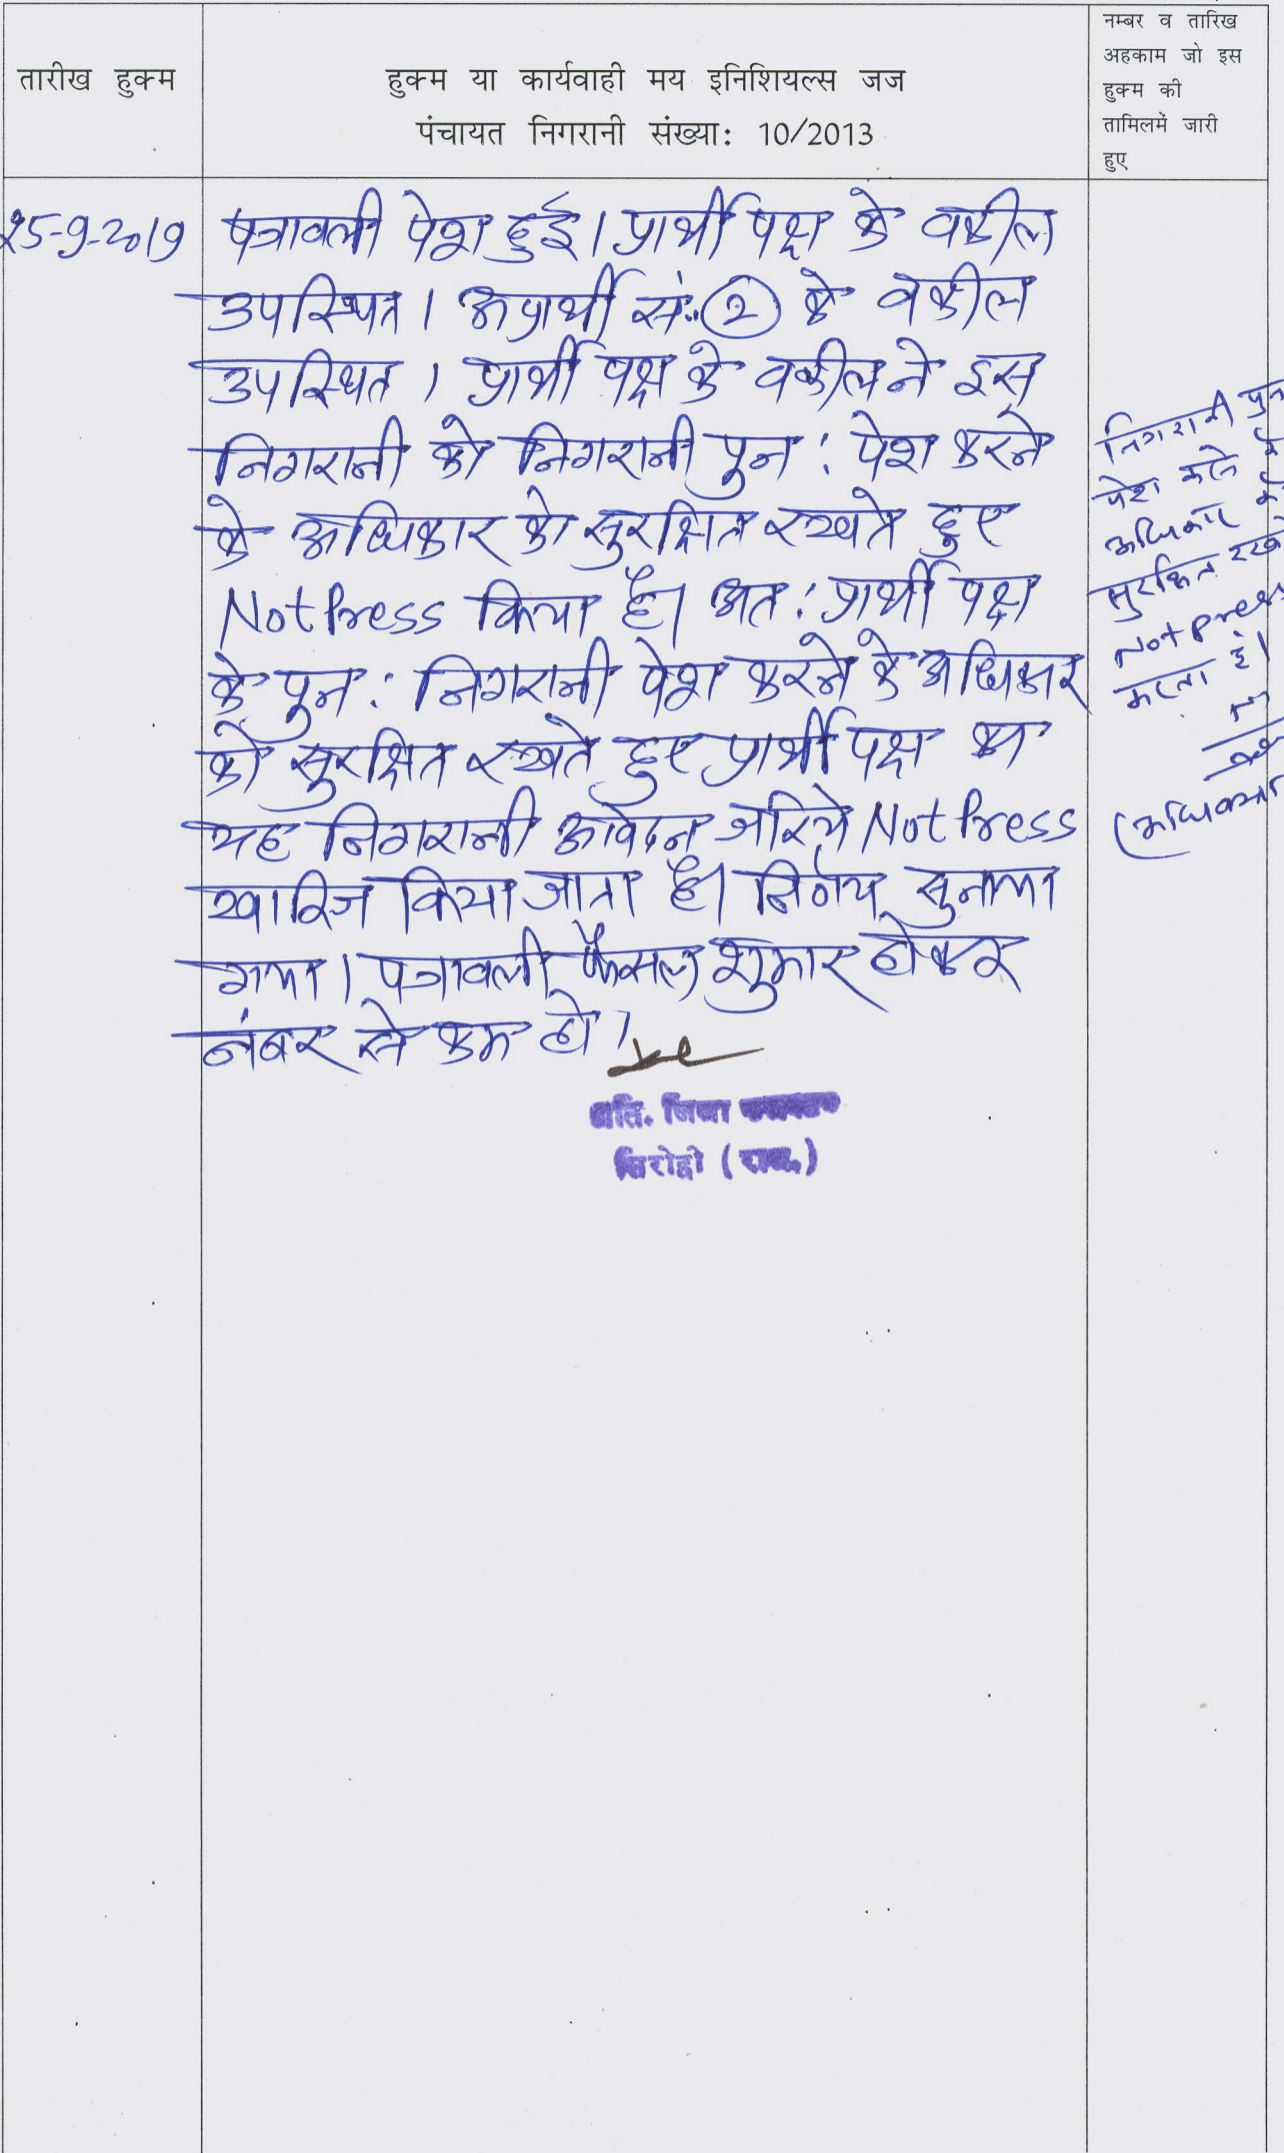 तारीख हुक्म
हुक्म या कार्यवाही मय इनिशियल्स जज
पंचायत निगरानी संख्या: 10/2013
नम्बर व तारिख
अहकाम जो इस
हुक्म की
तामिलमें जारी
हुए
25-9-2019
पत्रावली पेश हुई। प्रार्थी पक्ष के वकील
उपस्थित। अप्रार्थी सं. 2 के वकील
उपस्थित। प्रार्थी पक्ष के वकील ने इस
निगरानी को निगरानी पुन: पेश करने
के अधिकार को सुरक्षित रखते हुए
Not Press किया है। अत: प्रार्थी पक्ष
के पुन: निगरानी पेश करने के अधिकार
को सुरक्षित रखते हुए प्रार्थी पक्ष का
यह निगरानी आवेदन जरिये Not Press
खारिज किया जाता है। निर्णय सुनाया
गया। पत्रावली फैसल शुमार होकर
नंबर से कम हो।
अति. जिला
सिरोही (राज.)
निगरानी पुन
पेश करने के
अधिकार को
सुरक्षित रखते
Not press
करता हूं।
(अधिवक्ता